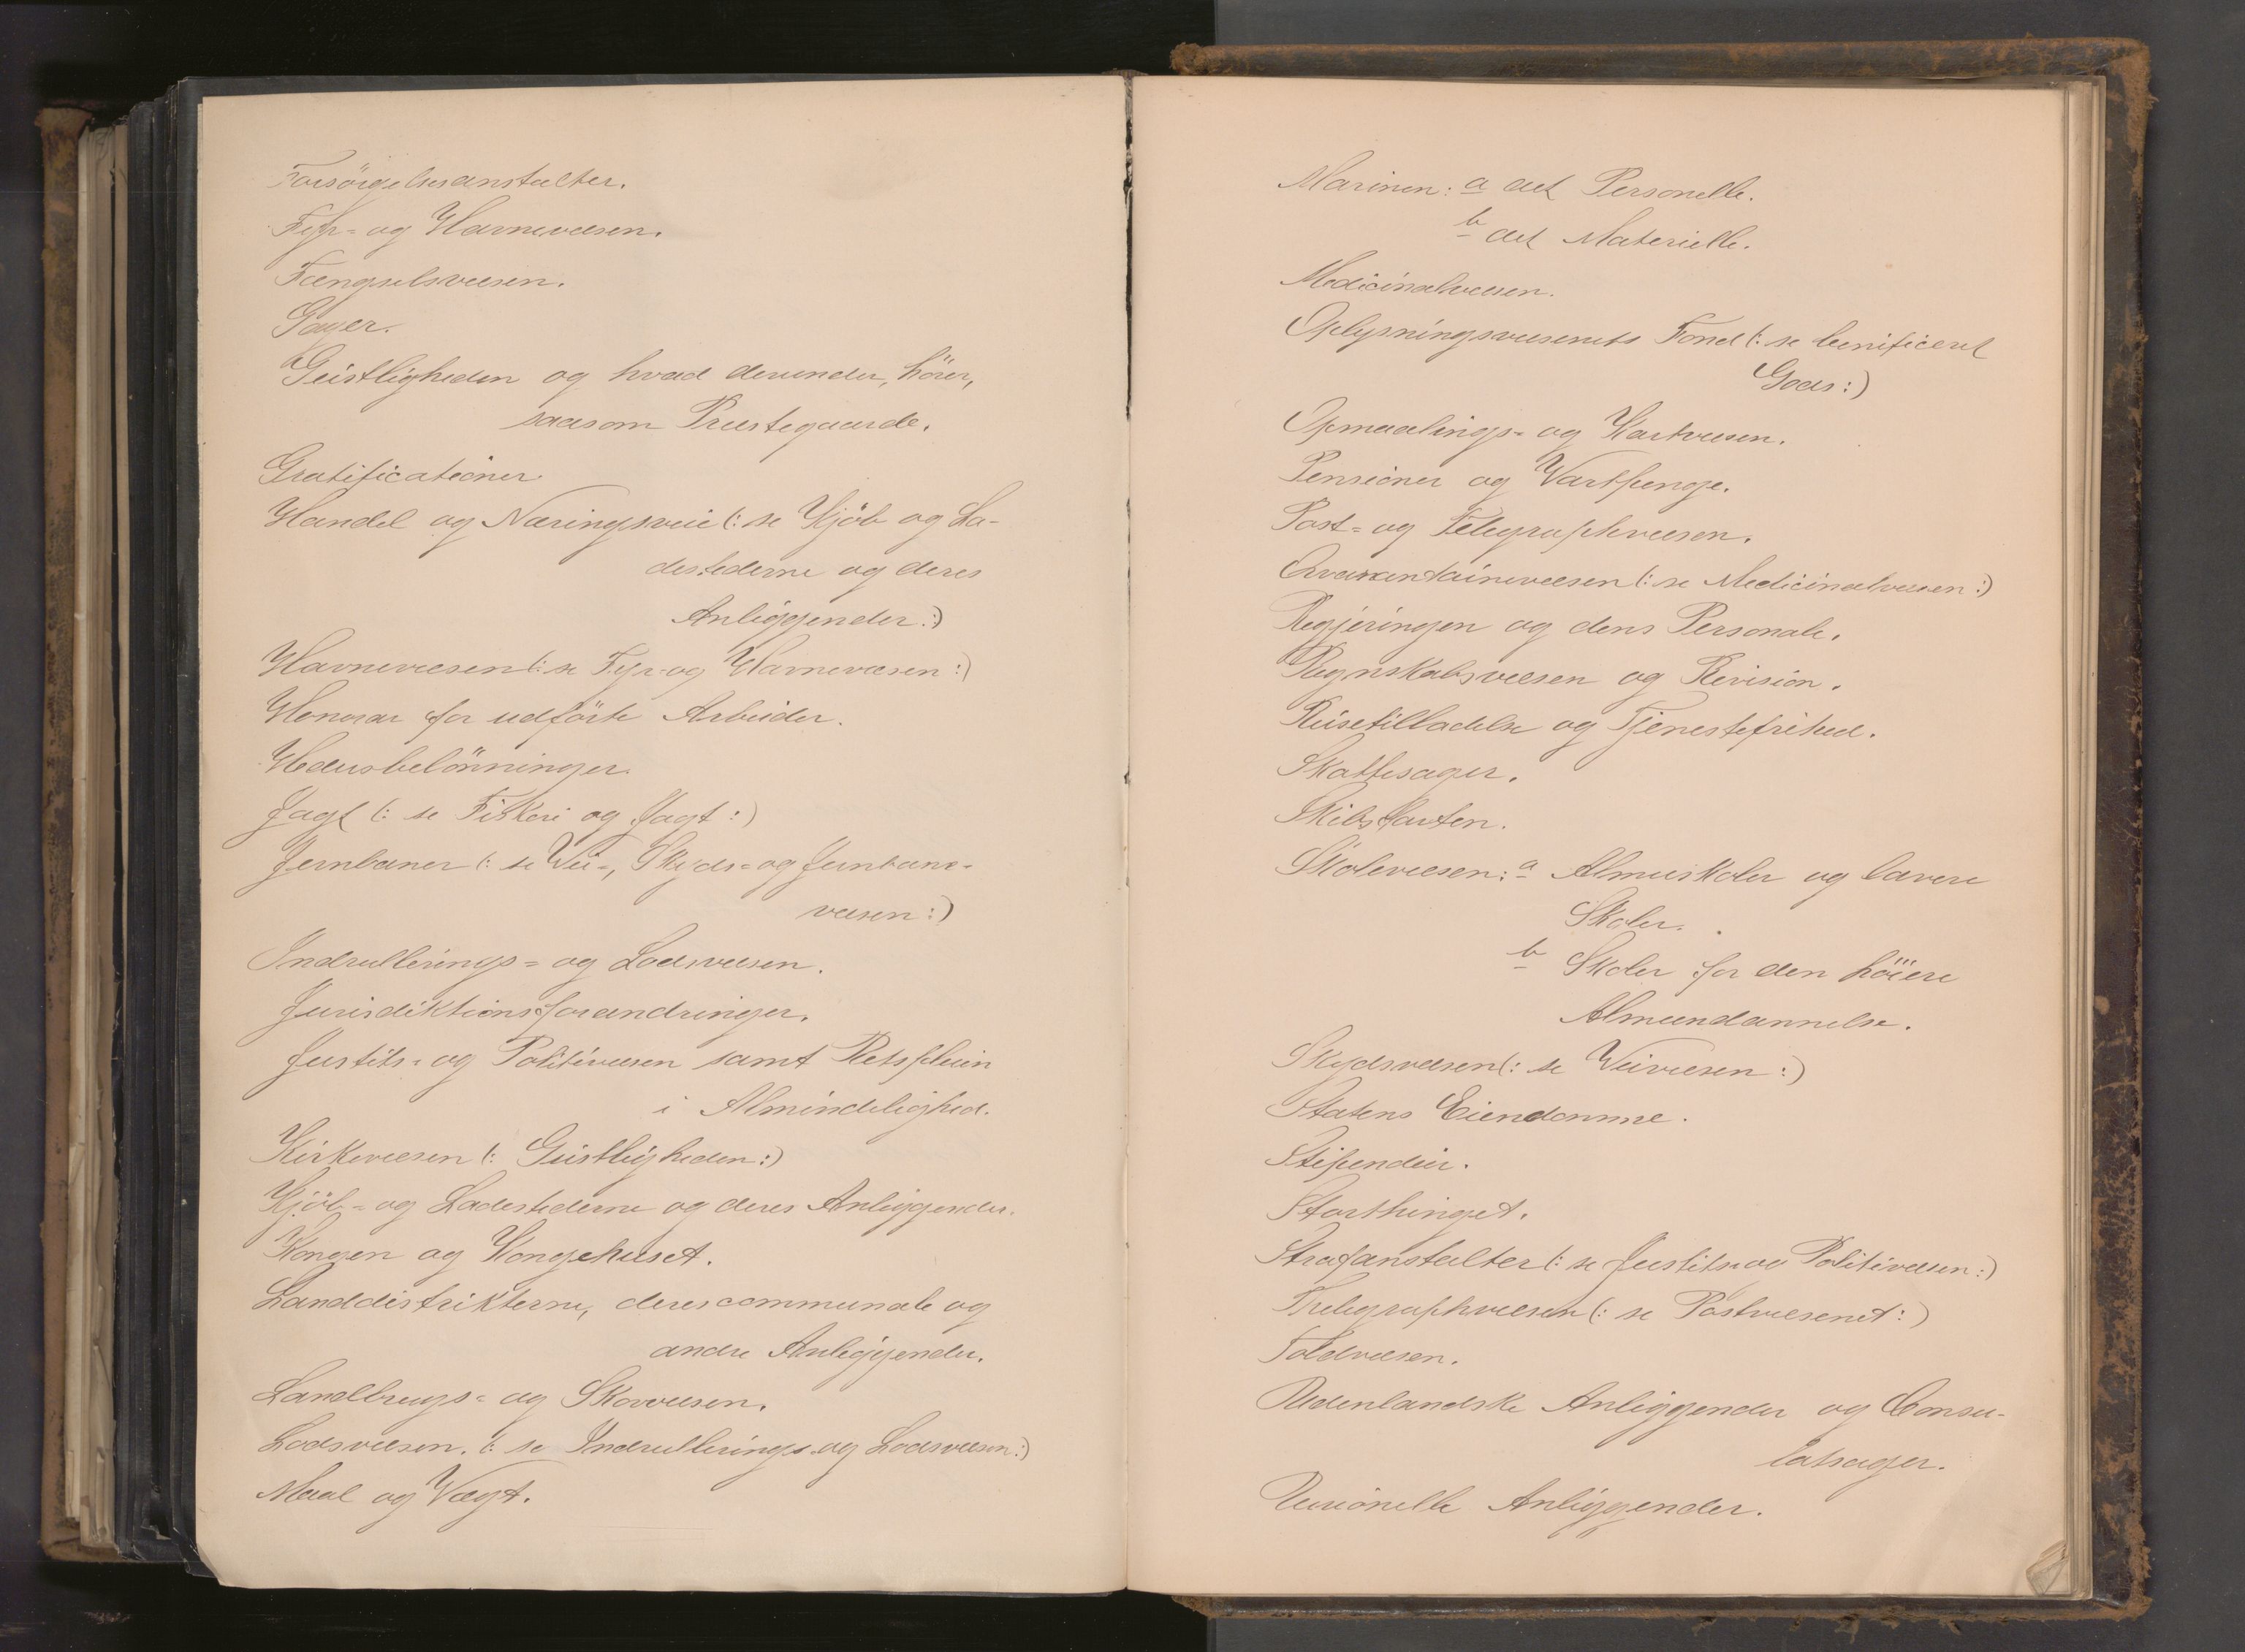 Forsörgelsesanstalter.
Fyr- og Havnevæsen.
Fængselsvæsen.
Gager.
Geistligheden og hvad derunder hörer,
saasom Præstegaarde.
Gratificationer.
Handel og Næringsveie (: se Kjöb og La-
destederne og deres
Anliggender :)
Havnevæsen (: se Fyr- og Havnevæsen :)
Honorar for udförte Arbeider.
Hædersbelönninger.
Jagt (: se Fiskeri og Jagt :)
Jernbaner (: se Vei-, Skyds- og Jernbane-
væsen :)
Indrullerings- og Lodsvæsen.
Jurisdiktionsforandringer.
Justits- og Politivæsen samt Retspleien
i Almindelighed.
Kirkevæsen (: Geistligheden :)
Kjöb- og Ladestederne og deres Anliggender.
Kongen og Kongehuset.
Landdistrikterne, deres communale og
andre Anliggender.
Landbrugs- og Skovvæsen.
Lodsvæsen. (: se Indrullerings- og Lodsvæsen :)
Maal og Vægt.
Marinen: a det Personelle.
b det Materielle.
Medicinalvæsen.
Oplysningsvæsenets Fond (: se benificeret
Gods :)
Opmaalings- og Kartvæsen.
Pensioner og Vartpenge.
Post- og Telegraphvæsen.
Qvarantainevæsen (: se Medicinalvæsen :)
Regjeringen og dens Personale.
Regnskabsvæsen og Revision.
Reisetilladelse og Tjenestefrihed.
Skattesager.
Skibsfarten.
Skolevæsen: a Almueskoler og lavere
Skoler.
b Skoler for den höiere
Almendannelse.
Skydsvæsen (: se Veivæsen :)
Statens Eiendomme.
Stipendier.
Storthinget.
Strafanstalter (: se Justits og Politivæsen :)
Thelegraphvæsen (: se Postvæsenet :)
Toldvæsen.
Udenlandske Anliggender og Consu-
latsager.
Unionelle Anliggender.